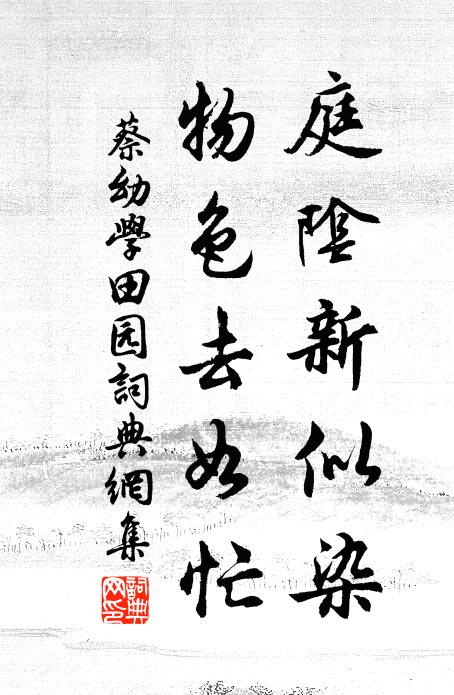 庭陰新似染
物色去如忙
蔡幼學田园詞典網集
詞典网印